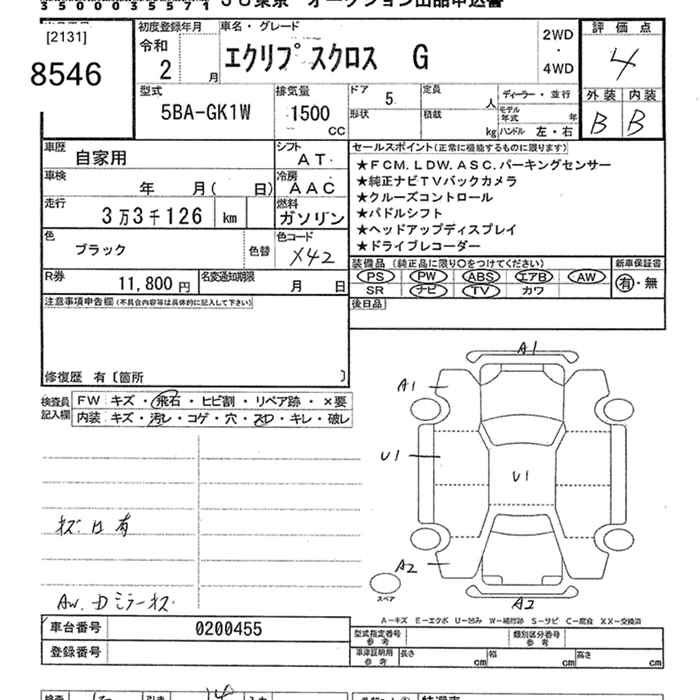 35000035571 JU東京 オークション出品申込書
[2131]
8546
初度登録年月
令和
2 月
車名・グレード
エクリプスクロス G
2WD
・
4WD
評価点
4
外装 内装
B B
型式
5BA-GK1W
排気量
1500
CC
ドア 5
形状
定員 人
積載 kg
ディーラー・並行
モデル年式 年
ハンドル 左・右
車歴
自家用
シフト
AT
車検
年 月( 日)
冷房
AAC
走行
3万3千126 km
燃料
ガソリン
色
ブラック
色替
色コード
X42
R券
11,800円
名変通知期限
月 日
セールスポイント(正常に機能するものに限ります)
★FCM.LDW.ASC.パーキングセンサー
★純正ナビTVバックカメラ
★クルーズコントロール
★パドルシフト
★ヘッドアップディスプレイ
★ドライブレコーダー
装備品(純正品に限り○をつけてください)
PS PW ABS エアB AW
SR ナビ TV カワ
新車保証書
有・無
後日品
注意事項申告欄(不具合内容等は具体的に記入して下さい)
修復歴 有〔箇所 〕
検査員
記入欄
FW キズ・飛石・ヒビ割・リペア跡・×要
内装 キズ・汚レ・コゲ・穴・スレ・キレ・破レ
A1
A1
U1
U1
A2
A2
スペア
キズ 凹 有
AW.Dミラーキズ
A-キズ E-エクボ U-凹み W-補修跡 S-サビ C-腐食 XX-交換済
車台番号 0200455
登録番号
型式指定番号
参考
類別区分番号
参考
車庫証明用
参考
長さ cm
幅 cm
高さ cm